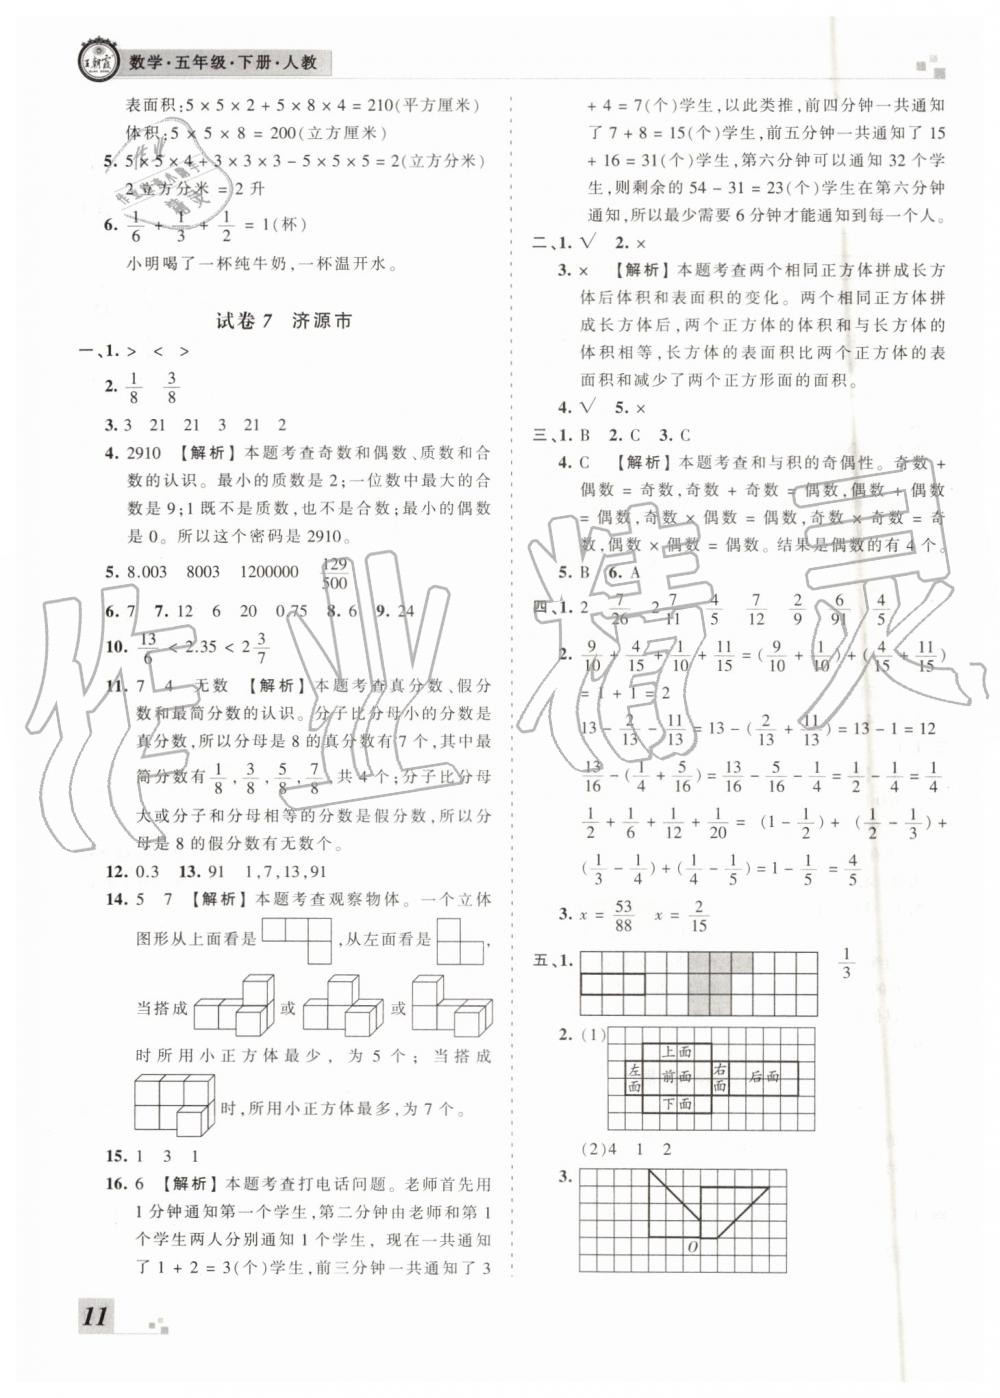 王朝霞
数学·五年级·下册·人教
表面积:5×5×2+5×8×4=210(平方厘米)
体积:5×5×8=200(立方厘米)
5. 5×5×4+3×3×3-5×5×5=2(立方分米)
2立方分米=2升
6. 1/6 + 1/3 + 1/2 = 1(杯)
小明喝了一杯纯牛奶,一杯温开水。
试卷7 济源市
一、1. > < >
2. 1/8 3/8
3. 3 21 21 3 21 2
4. 2910 【解析】本题考查奇数和偶数、质数和合
数的认识。最小的质数是2;一位数中最大的合
数是9;1既不是质数,也不是合数;最小的偶数
是0。所以这个密码是2910。
5. 8.003 8003 1200000 129/500
6. 7 7. 12 6 20 0.75 8. 6 9. 24
10. 13/6 < 2.35 < 2 3/7
11. 7 4 无数 【解析】本题考查真分数、假分
数和最简分数的认识。分子比分母小的分数是
真分数,所以分母是8的真分数有7个,其中最
简分数有 1/8, 3/8, 5/8, 7/8,共4个;分子比分母
大或分子和分母相等的分数是假分数,所以分
母是8的假分数有无数个。
12. 0.3 13. 91 1,7,13,91
14. 5 7 【解析】本题考查观察物体。一个立体
图形从上面看是 ,从左面看是 ,
当搭成 或 或
时所用小正方体最少,为5个;当搭成
时,所用小正方体最多,为7个。
15. 1 3 1
16. 6 【解析】本题考查打电话问题。老师首先用
1分钟通知第一个学生,第二分钟由老师和第1
个学生两人分别通知1个学生,现在一共通知
了1+2=3(个)学生,前三分钟一共通知了3
+4=7(个)学生,以此类推,前四分钟一共通知
了7+8=15(个)学生,前五分钟一共通知了15
+16=31(个)学生,第六分钟可以通知32个学
生,则剩余的54-31=23(个)学生在第六分钟
通知,所以最少需要6分钟才能通知到每一个人。
二、1. √ 2. ×
3. × 【解析】本题考查两个相同正方体拼成长方
体后体积和表面积的变化。两个相同正方体拼
成长方体后,两个正方体的体积和与长方体的
体积相等,长方体的表面积比两个正方体的表
面积和减少了两个正方形面的面积。
4. √ 5. ×
三、1. B 2. C 3. C
4. C 【解析】本题考查和与积的奇偶性。奇数+
偶数=奇数,奇数+奇数=偶数,偶数+偶数
=偶数,奇数×偶数=偶数,奇数×奇数=奇
数,偶数×偶数=偶数。结果是偶数的有4个。
5. B 6. A
四、1. 2 7/26 2 7/11 4/5 7/12 2/9 6/91 4/5
2. 9/10 + 4/15 + 1/10 + 11/15 = (9/10 + 1/10) + (4/15 + 11/15)
=1+1=2
13 - 2/13 - 11/13 = 13 - (2/13 + 11/13) = 13 - 1 = 12
13/16 - (1/4 + 5/16) = 13/16 - 5/16 - 1/4 = 1/2 - 1/4 = 1/4
1/2 + 1/6 + 1/12 + 1/20 = (1 - 1/2) + (1/2 - 1/3) +
(1/3 - 1/4) + (1/4 - 1/5) = 1 - 1/5 = 4/5
3. x = 53/88 x = 2/15
五、1. 1/3
2. (1)
上面
左面 前面 右面 后面
下面
(2) 4 1 2
3.
O
11
作业精灵